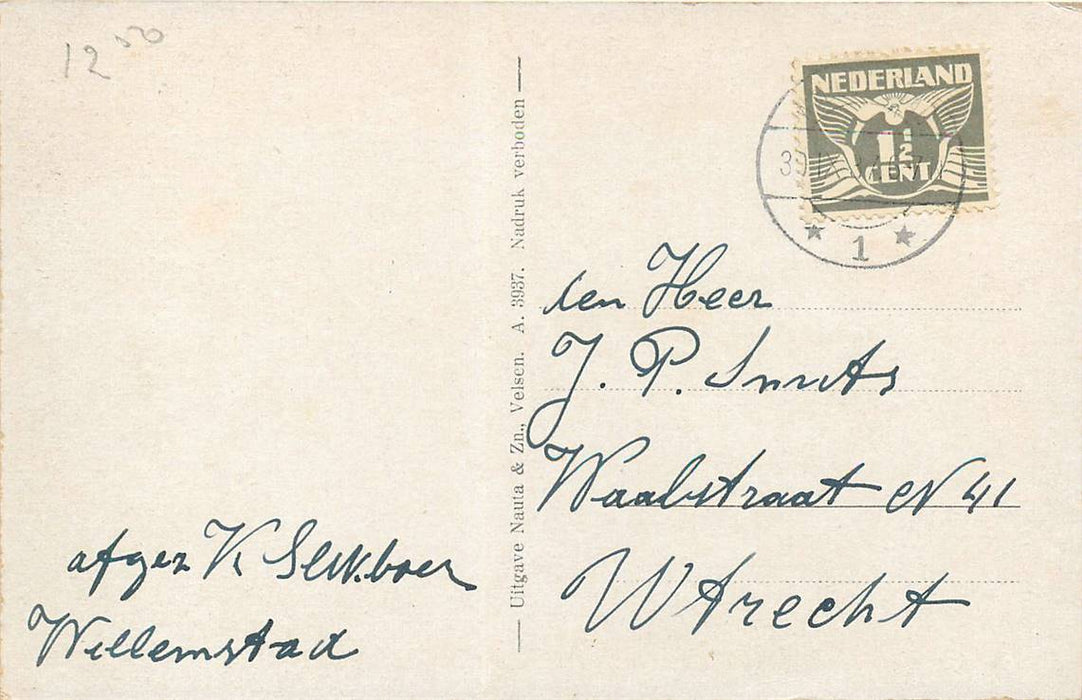 12 50
NEDERLAND
1½
CENT
1
den Heer
J. P. Smits
Waalstraat N 41
Utrecht
Uitgave Nauta & Zn., Velsen. A. 3937. Nadruk verboden
afgez K
Willemstad